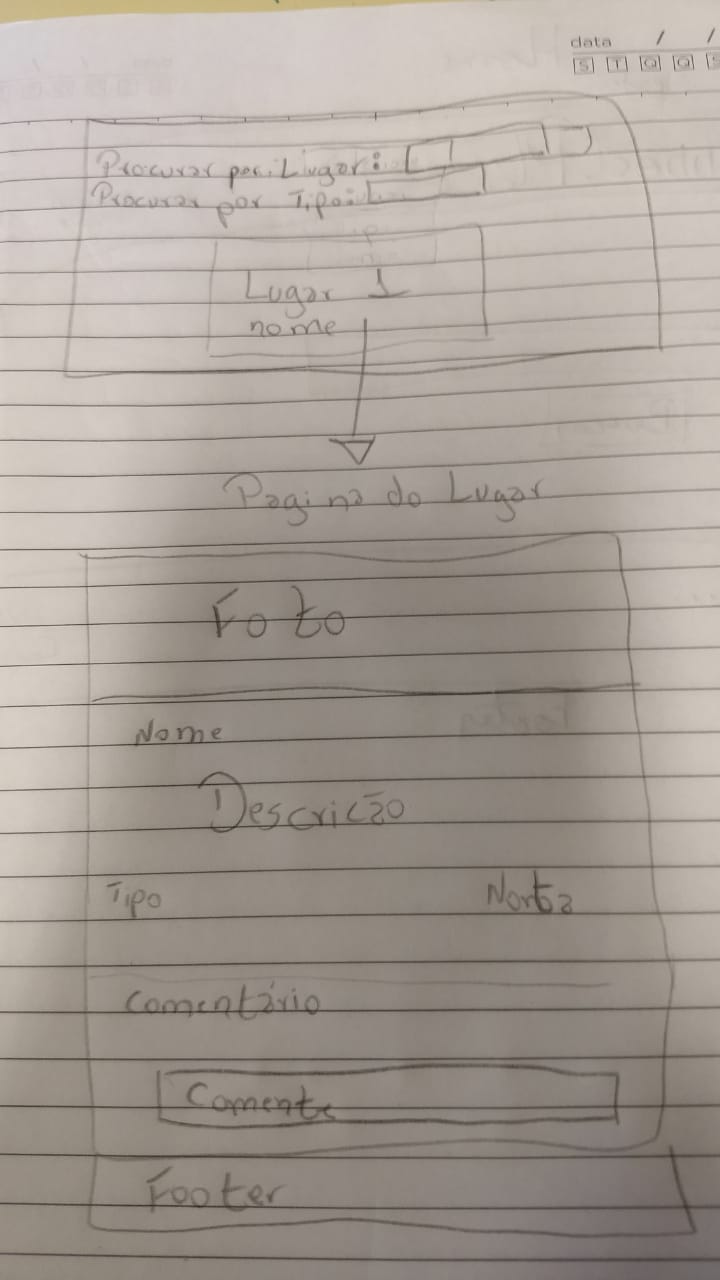 data / /
S T Q Q S
Procurar por Lugar:
Procurar por Tipo:
Lugar 1
nome
Pagina do Lugar
Foto
Nome
Descrição
Tipo Norta
Comentário
Comente
Footer